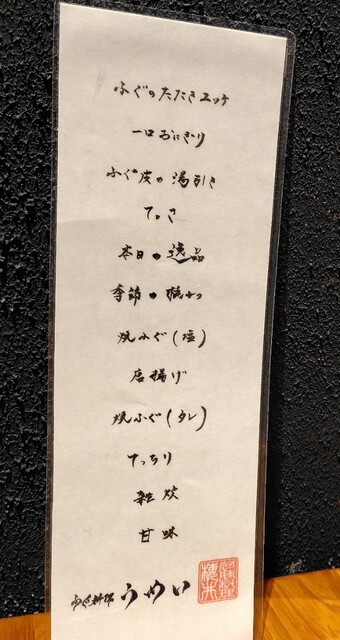 ふぐのたたきユッケ
一口おにぎり
ふぐ皮の湯引き
てっさ
本日の逸品
季節の椀もの
焼ふぐ(塩)
唐揚げ
焼ふぐ(タレ)
てっちり
雑炊
甘味
ふぐ料理 うめい